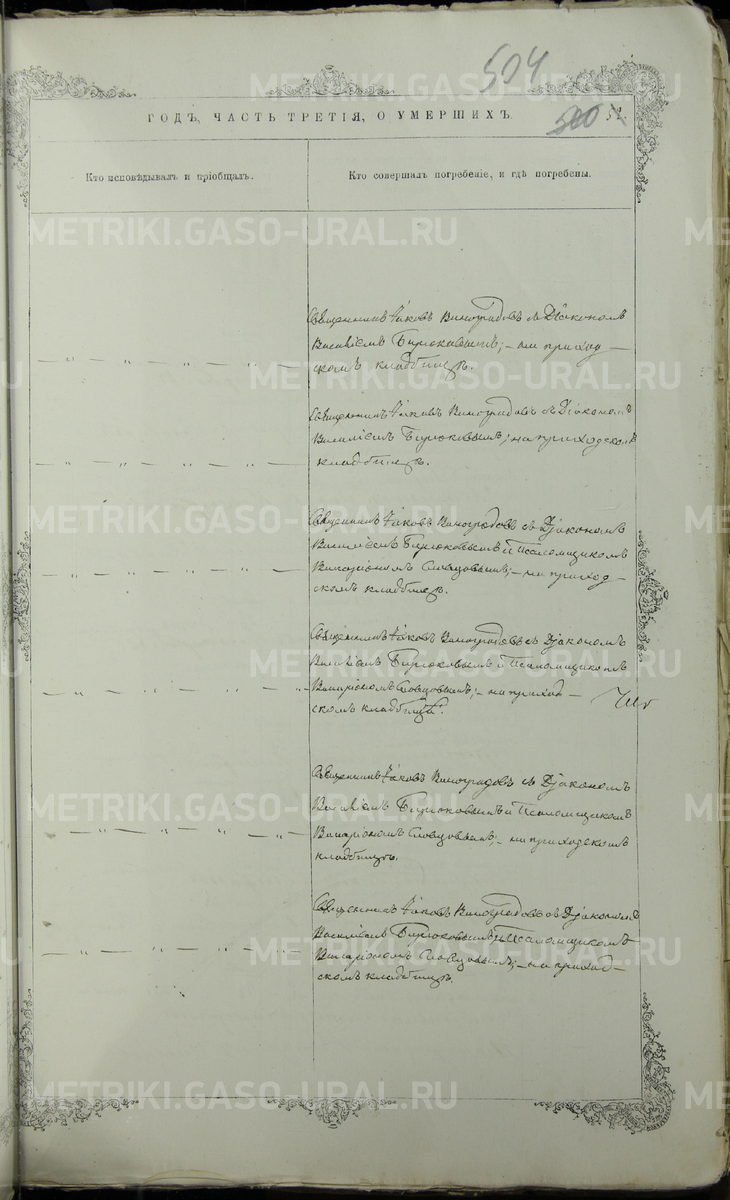 504
500 52.
ГОДЪ, ЧАСТЬ ТРЕТІЯ, О УМЕРШИХЪ.
Кто исповѣдывалъ и пріобщалъ.
Кто совершалъ погребеніе, и гдѣ погребены.
Священникъ Іаковъ Виноградовъ съ Діакономъ
Василіемъ Бирюковымъ; – на приход–
скомъ кладбищѣ.
Священникъ Іаковъ Виноградовъ съ Діакономъ
Василіемъ Бирюковымъ; на приходскомъ
кладбищѣ.
Священникъ Іаковъ Виноградовъ съ Діакономъ
Василіемъ Бирюковымъ и Псаломщикомъ
Иларіономъ Словцовымъ; – на приход–
скомъ кладбищѣ.
Священникъ Іаковъ Виноградовъ съ Діакономъ
Василіемъ Бирюковымъ и Псаломщикомъ
Иларіономъ Словцовымъ; – на приход–
скомъ кладбищѣ.
Священникъ Іаковъ Виноградовъ съ Діакономъ
Василіемъ Бирюковымъ и Псаломщикомъ
Иларіономъ Словцовымъ; – на приходскомъ
кладбищѣ.
Священникъ Іаковъ Виноградовъ съ Діакономъ
Василіемъ Бирюковымъ и Псаломщикомъ
Иларіономъ Словцовымъ; – на приход–
скомъ кладбищѣ.
METRIKI.GASO-URAL.RU